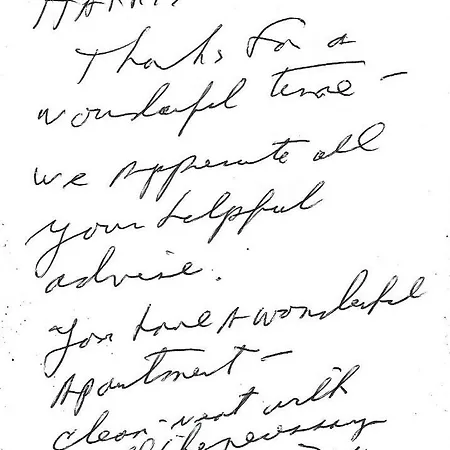 HARRIS
Thanks for a
wonderful time –
we appreciate all
your helpful
advise.
You have a wonderful
apartment –
clean - neat with
the necessary